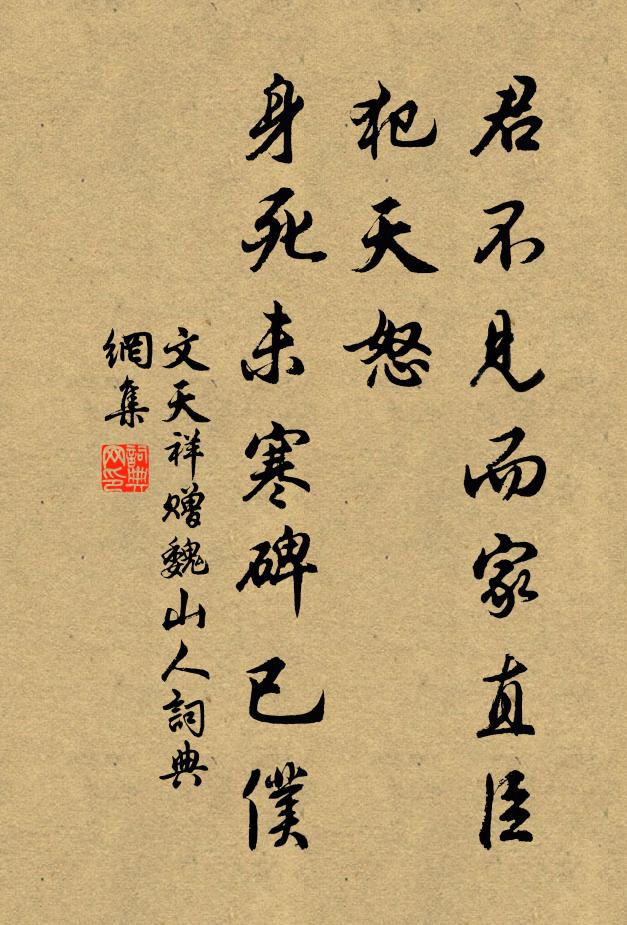 君不見而家直臣
犯天怒
身死未寒碑已僕
文天祥贈魏山人詞典
網集
詞典
网印